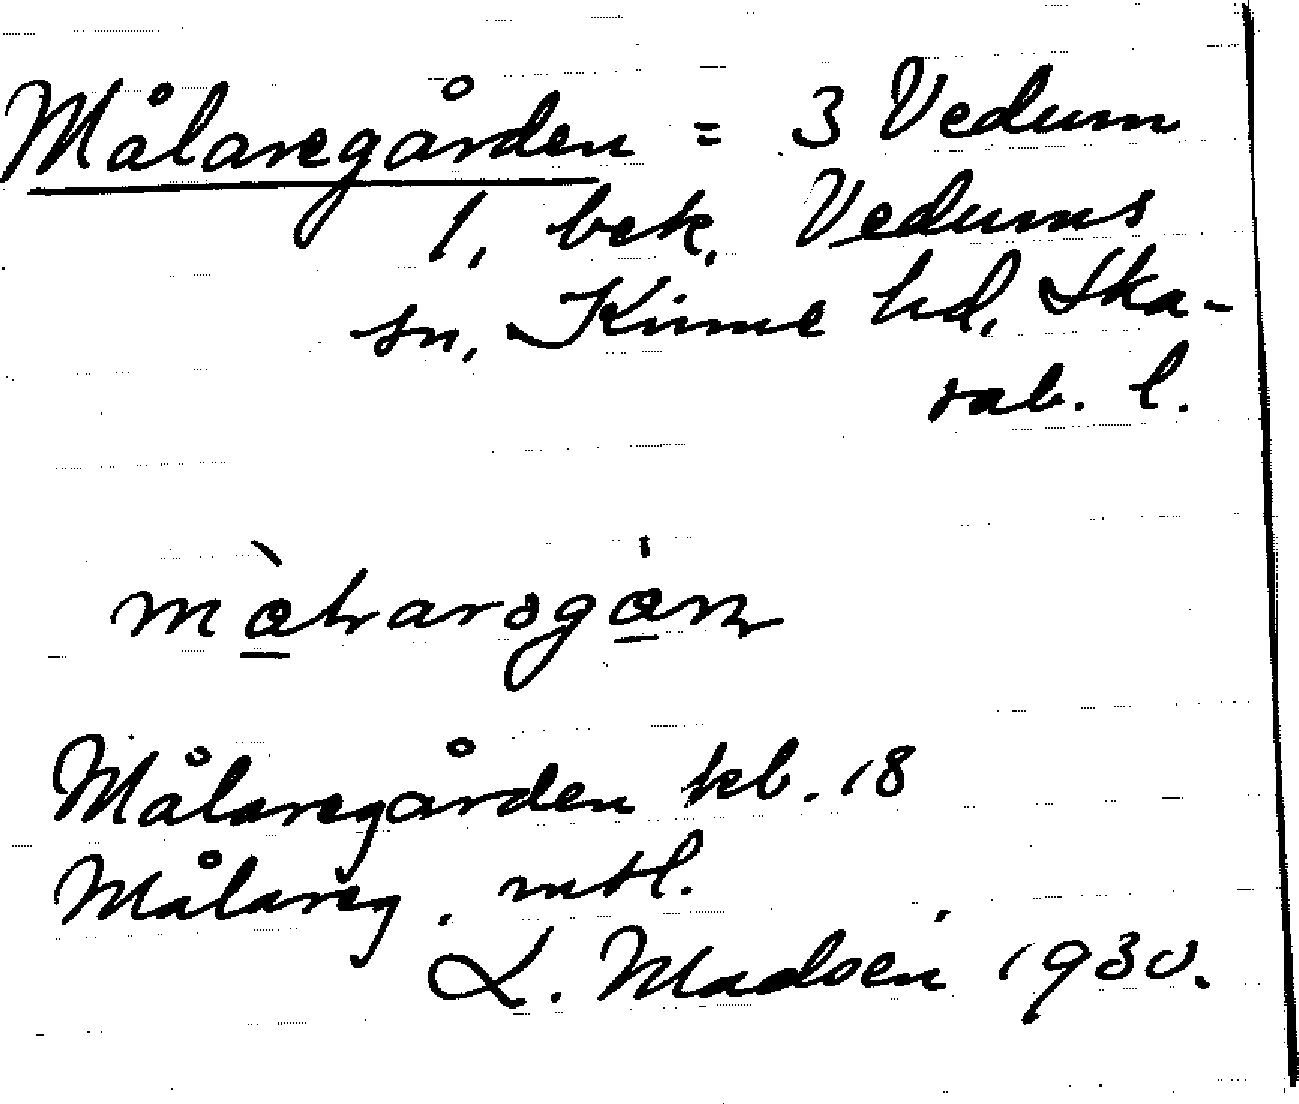 Målaregården = 3 Vedum
1, bek, Vedums
sn, Kinne hd, Ska-
rab. l.
Målaregården kb. 18
Målareg. mtl.
L. Madsén 1930.